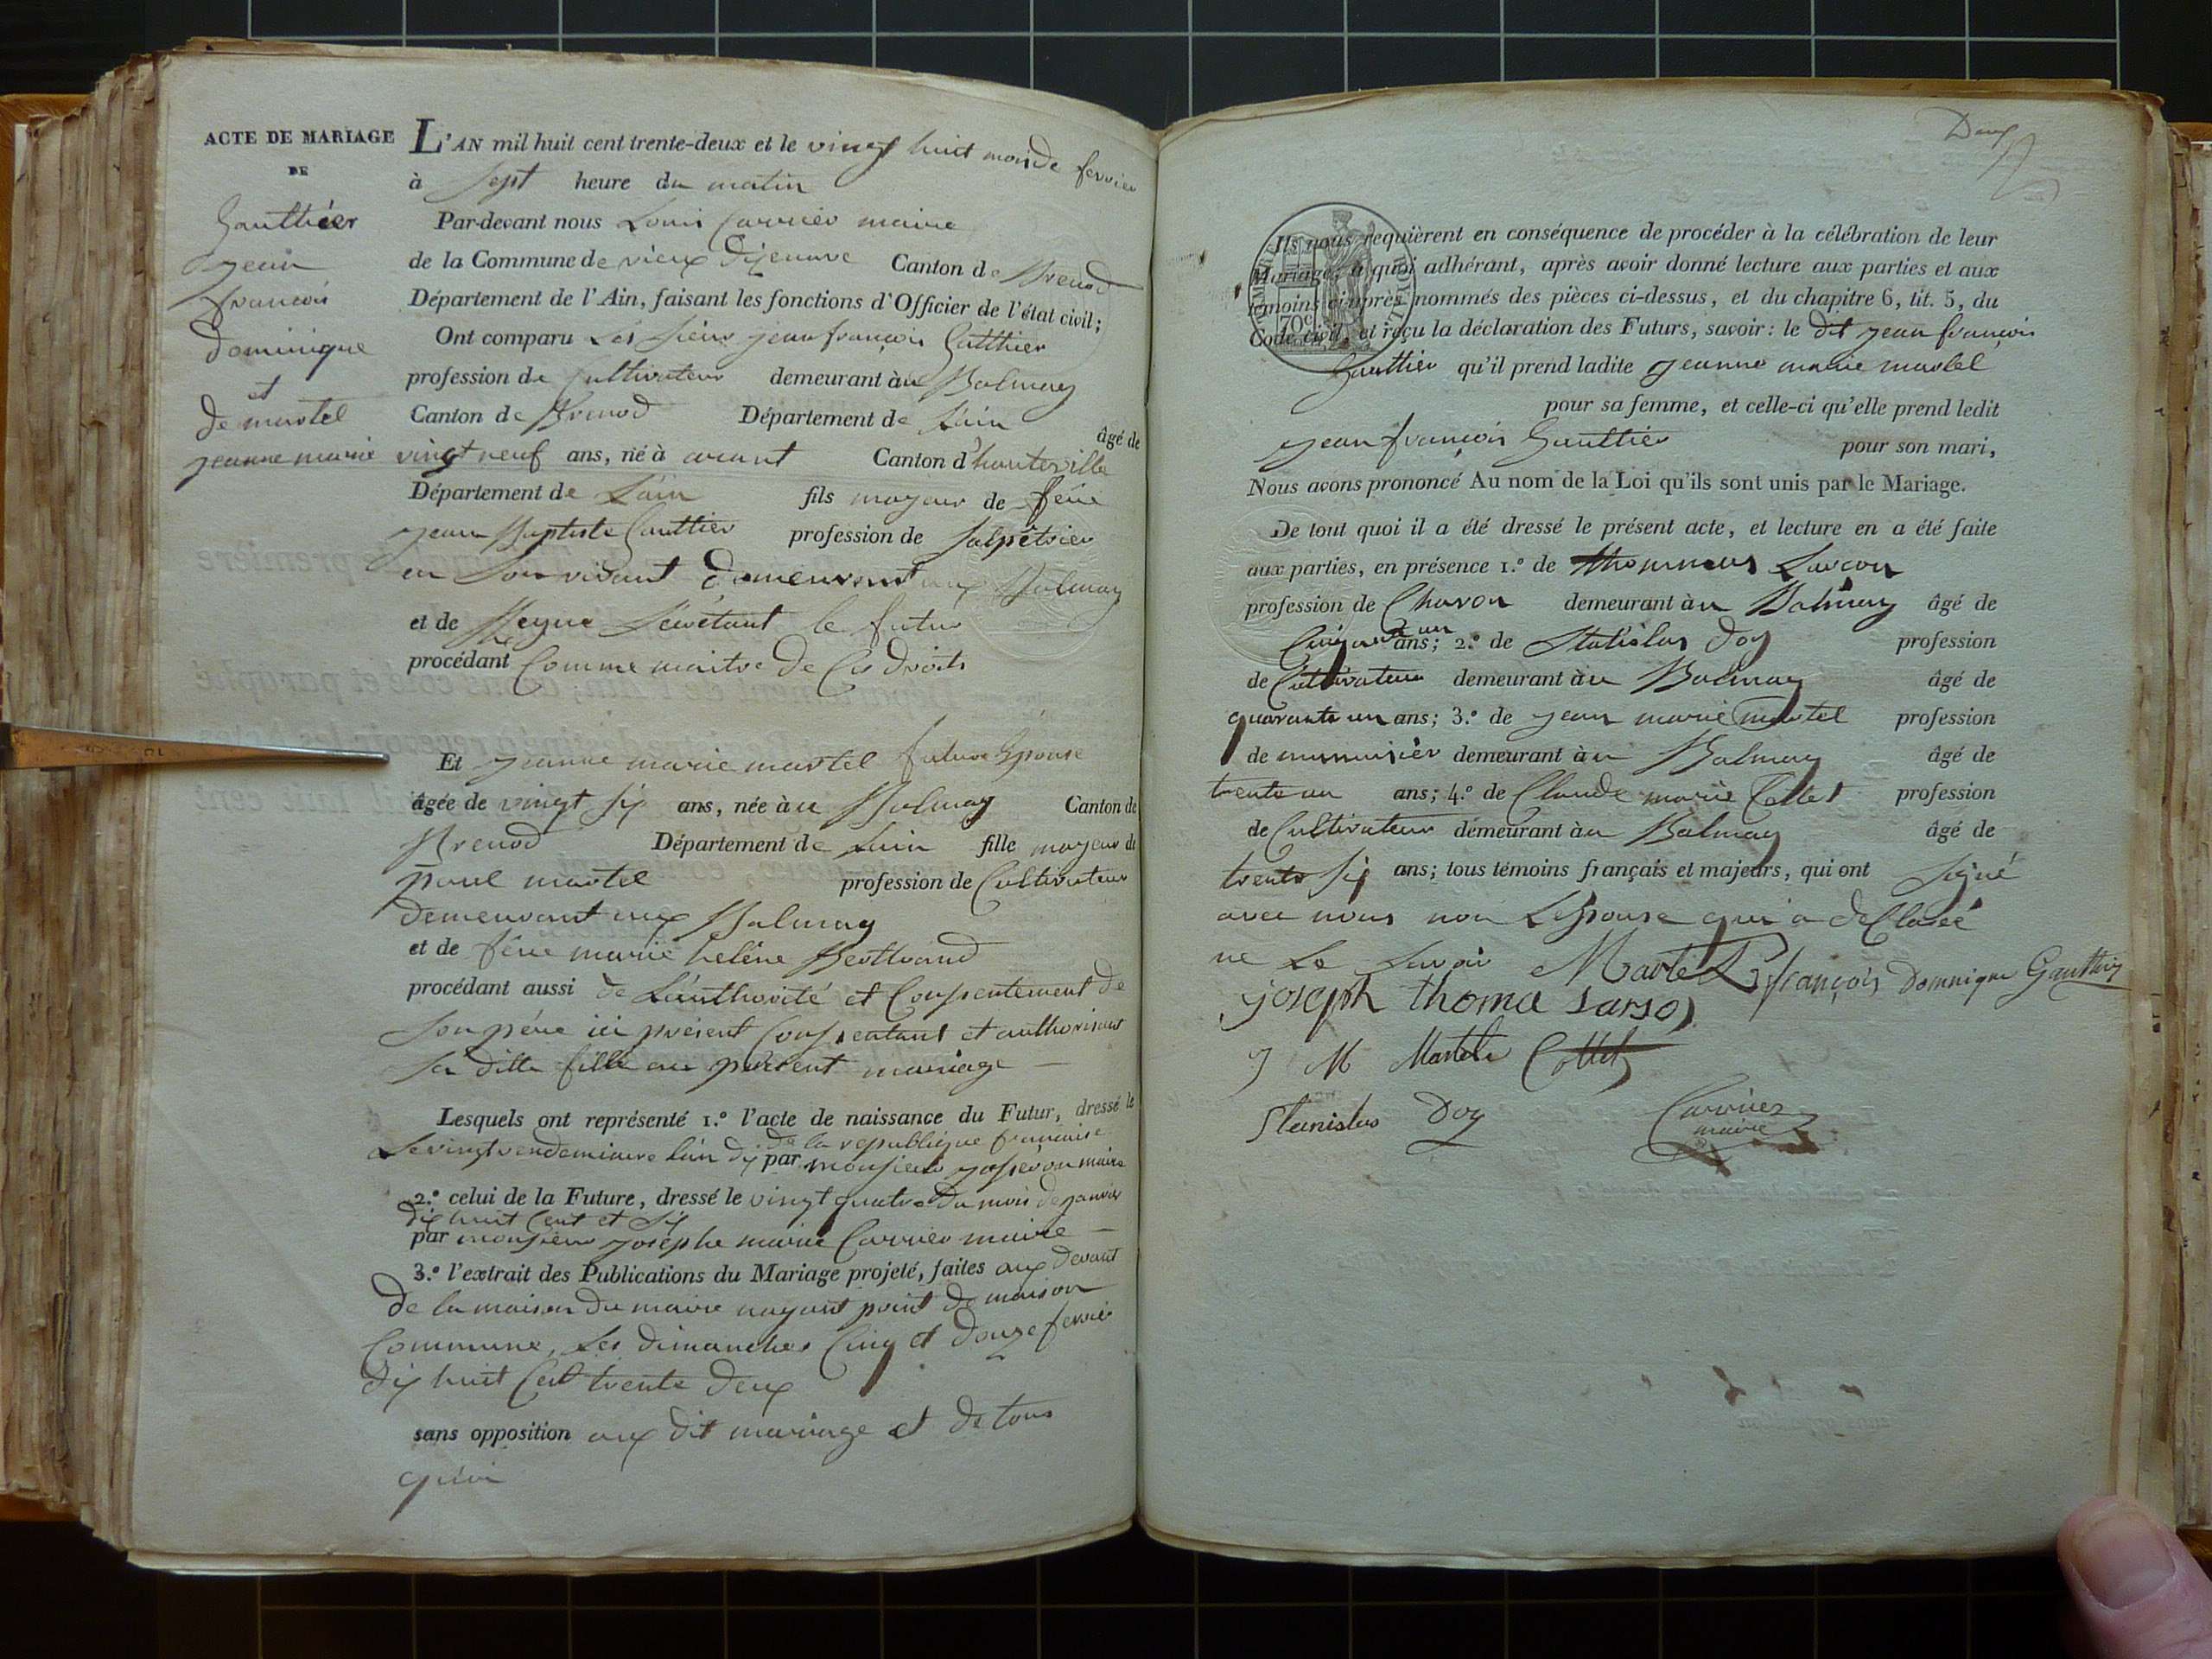 ACTE DE MARIAGE
DE
Gauthier
jean
francois
dominique
et
de martel
jeanne marie
L'AN mil huit cent trente-deux et le vingt huit mois de fevrier
à sept heure du matin
Par-devant nous Louis Carrier maire
de la Commune de vieux d'izenave Canton de Brenod
Département de l'Ain, faisant les fonctions d'Officier de l'état civil;
Ont comparu Les sieur jean françois Gautthier
profession de cultivateur demeurant àu Balmay
Canton de Brenod Département de Lain âgé de
vingt neuf ans, né à arant Canton d'hauteville
Département de Lain fils mayeur de feüe
jean Baptiste Gautthier profession de salpétrier
en son vivant demeurant aux Balmay
et de Reyne Sevétant le futur
procédant Comme maitre de Ces droits
Et jeanne marie martel future Epouse
âgée de vingt six ans, née àu Balmay Canton de
Brenod Département de Lain fille mayeur de
paul martel profession de Cultivateur
demeurant aux Balmay
et de feüe marie heléne Berthrand
procédant aussi de L'authorité et Consentement de
son pére ici présent Consentant et authorisant
sa ditte fille au présent mariage
Lesquels ont représenté 1.º l'acte de naissance du Futur, dressé le
Le vingt vendemiaire l'an dix de la republique francaise
par monsieur josserou maire
2.º celui de la Future, dressé le vingt quatre du mois de janvier
dix huit Cent et six
par monsieur joséphe marie Carrier maire
3.º l'extrait des Publications du Mariage projeté, faites aux devant
de la maison du maire nayant point de maison
Commune, Les dimanches Cinq et douze fevrier
dix huit Cent trente deux
sans opposition aux dit mariage et de tous
quoi
Deux
70c
Ils nous requièrent en conséquence de procéder à la célébration de leur
Mariage; à quoi adhérant, après avoir donné lecture aux parties et aux
témoins ci-après nommés des pièces ci-dessus, et du chapitre 6, tit. 5, du
Code civil, et reçu la déclaration des Futurs, savoir: le dit jean françois
Gautthier qu'il prend ladite jeanne marie martel
pour sa femme, et celle-ci qu'elle prend ledit
jean françois Gautthier pour son mari,
Nous avons prononcé Au nom de la Loi qu'ils sont unis par le Mariage.
De tout quoi il a été dressé le présent acte, et lecture en a été faite
aux parties, en présence 1.º de thommas Larcon
profession de Charon demeurant àu Balmay âgé de
ans; 2.º de Statislas Doy profession
de Cultivateur demeurant àu Balmay âgé de
quarante un ans; 3.º de jean marie martel profession
de mennusier demeurant àu Balmay âgé de
trente un ans; 4.º de Claude marie Collet profession
de Cultivateur demeurant àu Balmay âgé de
trente six ans; tous témoins français et majeurs, qui ont signé
avec nous non L'epouse qui a declaréé
ne Le savoir Martel françois Domnique Gauthier
joseph thoma Larson
J M Martel Collet
Stanislas Doy Carrier
maire